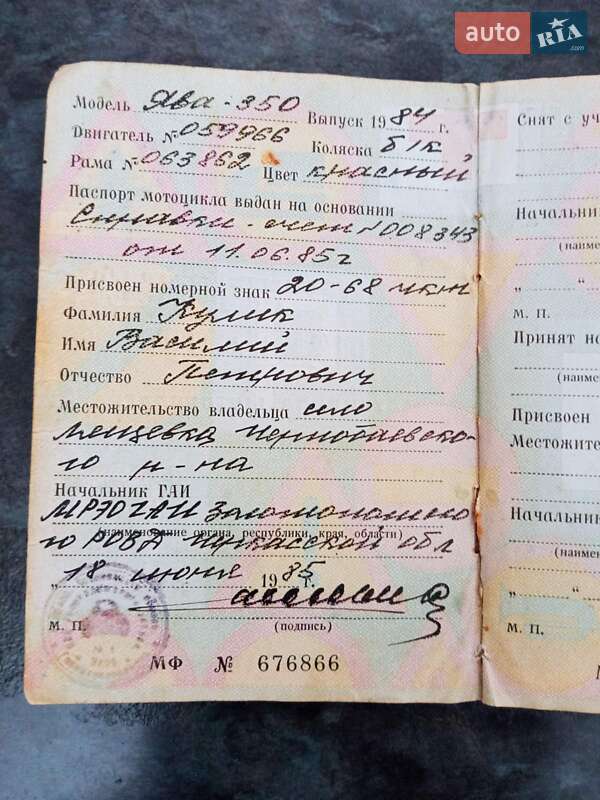 auto RIA .com
Модель Ява-350 Выпуск 1984 г.
Двигатель № 059966 Коляска б/к
Рама № 063862 Цвет красный
Паспорт мотоцикла выдан на основании
Справки-счет №008343
от 11.06.85г
Присвоен номерной знак 20-68 чкн
Фамилия Кулик
Имя Василий
Отчество Петрович
Местожительство владельца село
го р-на
Начальник ГАИ
МРЭО ГАИ
(наименование органа, республики, края, области)
го РОВД Черкасской обл
"18 июня 1985 г.
(подпись)
М. П.
МФ № 676866
Снят с уч
Начальник
(наимен
" "
М. П.
Принят на
(наимен
Присвоен
Местожите
Начальник
(наимен
" "
М. П.